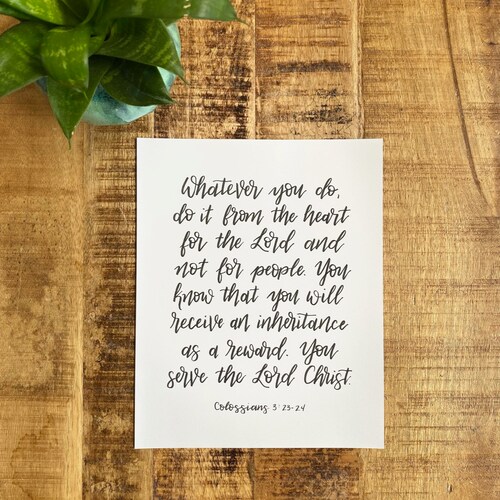 Whatever you do,
do it from the heart
for the Lord and
not for people. You
know that you will
receive an inheritance
as a reward. You
serve the Lord Christ.
Colossians 3:23-24